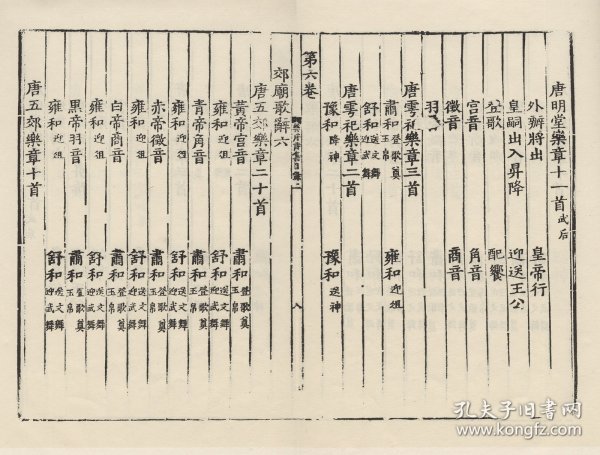 唐明堂樂章十一首 武后
外辦將出 皇帝行
皇嗣出入昇降 迎送王公
登歌 配饗
宫音 角音
徵音 商音
羽音
唐雩祀樂章三首
肅和 登歌奠玉帛 雍和 迎俎
舒和 送文舞迎武舞
唐雩祀樂章二首
豫和 降神 豫和 送神
第六卷
八
郊廟歌辭六
唐五郊樂章二十首
黃帝宫音 肅和 登歌奠玉帛
雍和 迎俎 舒和 送文舞迎武舞
青帝角音 肅和 登歌奠玉帛
雍和 迎俎 舒和 送文舞迎武舞
赤帝徵音 肅和 登歌奠玉帛
雍和 迎俎 舒和 送文舞迎武舞
白帝商音 肅和 登歌奠玉帛
雍和 迎俎 舒和 送文舞迎武舞
黑帝羽音 肅和 登歌奠玉帛
雍和 迎俎 舒和 送文舞迎武舞
唐五郊樂章十首
孔夫子旧书网
www.kongfz.com